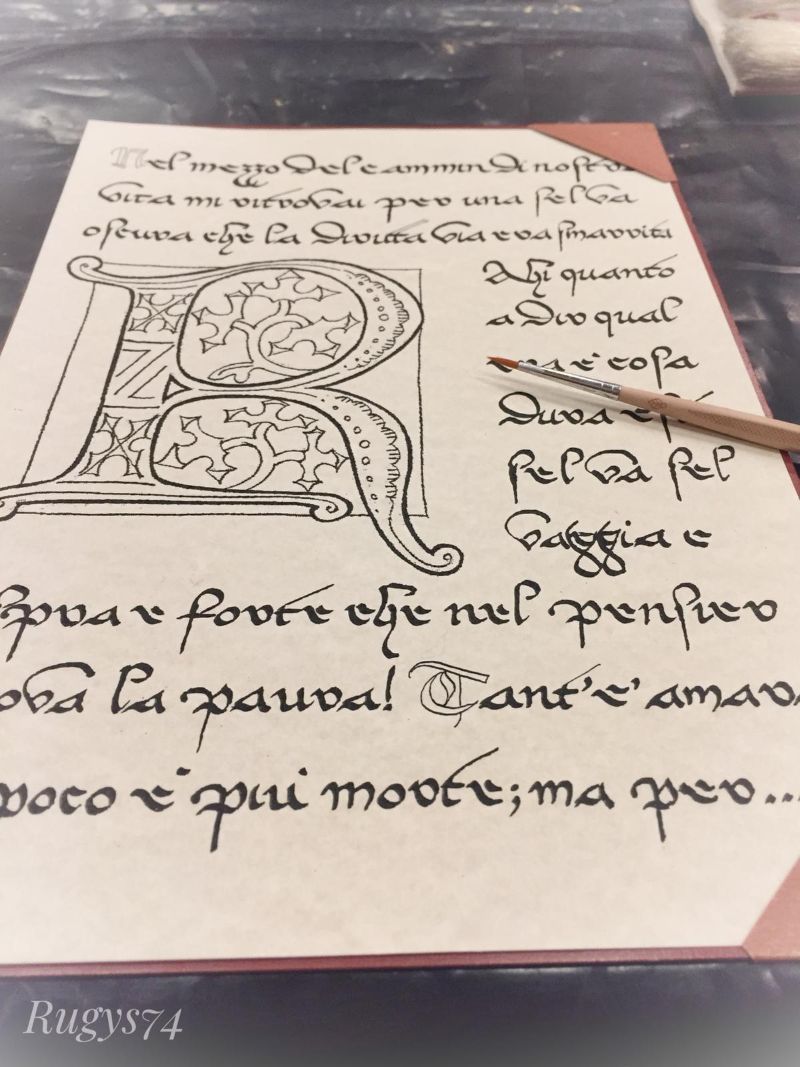 Nel mezzo del cammin di nostra
vita mi ritrovai per una selva
oscura che la diritta via era smarrita
R
Ahi quanto
a dir qual
era e' cosa
dura e'
selva sel
vaggia e
spra e forte che nel pensier
ova la paura! Tant'e' amara
poco e' piu' morte; ma per...
Rugys74